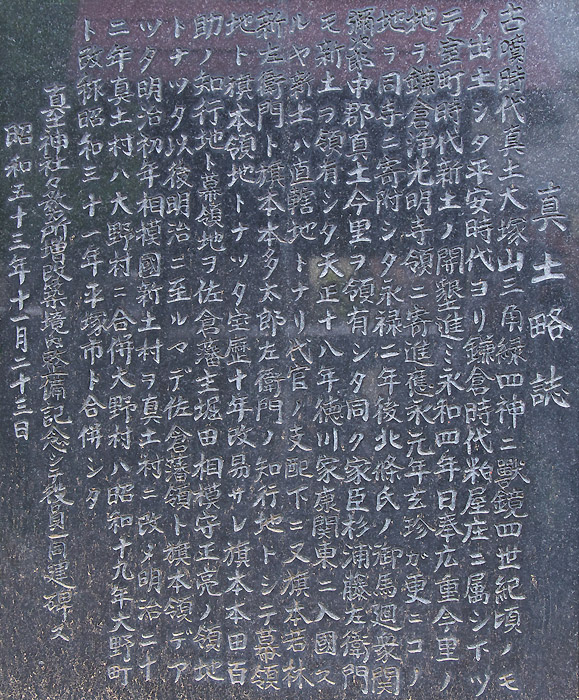 真土略誌
古噴時代真土大塚山三角縁四神二獣鏡四世紀頃ノモ
ノ出土シタ平安時代ヨリ鎌倉時代粕屋庄ニ属シ下ツ
テ室町時代新土ノ開墾進ミ永和四年日奉広重今里ノ
地ヲ鎌倉浄光明寺領ニ寄進應永元年玄珍が更ニコノ
地ヲ同寺ニ寄附シタ永禄二年後北條氏ノ御馬廻衆関
彌次郎中郡真土今里ヲ領有シタ同ク家臣杉浦藤左衛門
モ新土ヲ領有シタ天正十八年徳川家康関東ニ入國ス
ルヤ新土ハ直轄地トナリ代官ノ支配下ニ又旗本若林
新左衛門ト旗本本多太郎左衛門ノ知行地トシテ幕領
地ト旗本領地トナツタ宝暦十年改易サレ旗本本田百
助ノ知行地ト幕領地ヲ佐倉藩主堀田相模守正亮ノ領地
トナツタ以後明治ニ至ルマデ佐倉藩領ト旗本領デア
ツタ明治初年相模國新土村ヲ真土村ニ改メ明治二十
二年真土村ハ大野村ニ合併大野村ハ昭和十九年大野町
ト改称昭和三十一年平塚市ト合併シタ
真土神社々務所増改築境内整備記念シテ役員一同建碑ス
昭和五十三年十一月二十三日